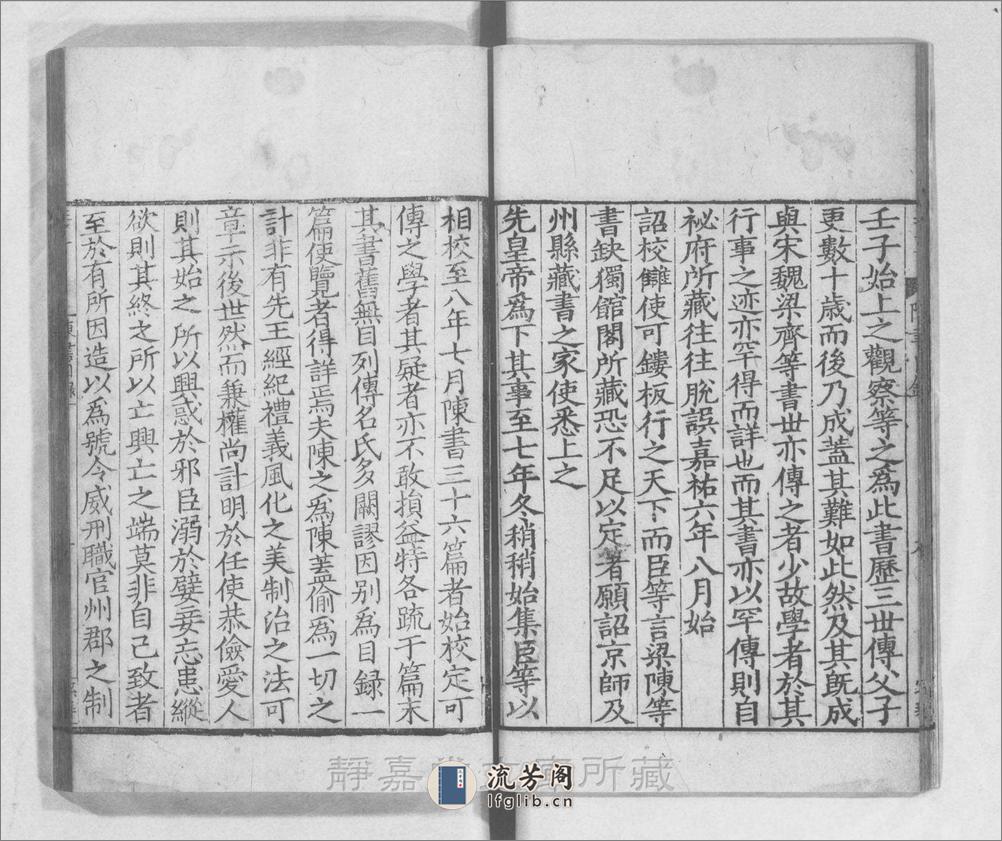 壬子始上之觀察等之爲此書歷三世傳父子
更數十歲而後乃成蓋其難如此然及其旣成
與宋魏梁齊等書世亦傳之者少故學者於其
行事之迹亦罕得而詳也而其書亦以罕傳則自
祕府所藏往往脫誤嘉祐六年八月始
詔校讎使可鏤板行之天下而臣等言梁陳等
書缺獨館閣所藏恐不足以定著願詔京師及
州縣藏書之家使悉上之
先皇帝爲下其事至七年冬稍稍始集臣等以
相校至八年七月陳書三十六篇者始校定可
傳之學者其疑者亦不敢損益特各疏于篇末
其書舊無目列傳名氏多闕謬因別爲目録一
篇使覽者得詳焉夫陳之爲陳蓋偷爲一切之
計非有先王經紀禮義風化之美制治之法可
章示後世然而兼權尚計明於任使恭儉愛人
則其始之所以興惑於邪臣溺於嬖妾忘患縱
欲則其終之所以亡興亡之端莫非自己致者
至於有所因造以爲號令威刑職官州郡之制
靜嘉堂文庫所藏
流芳阁
lfglib.cn